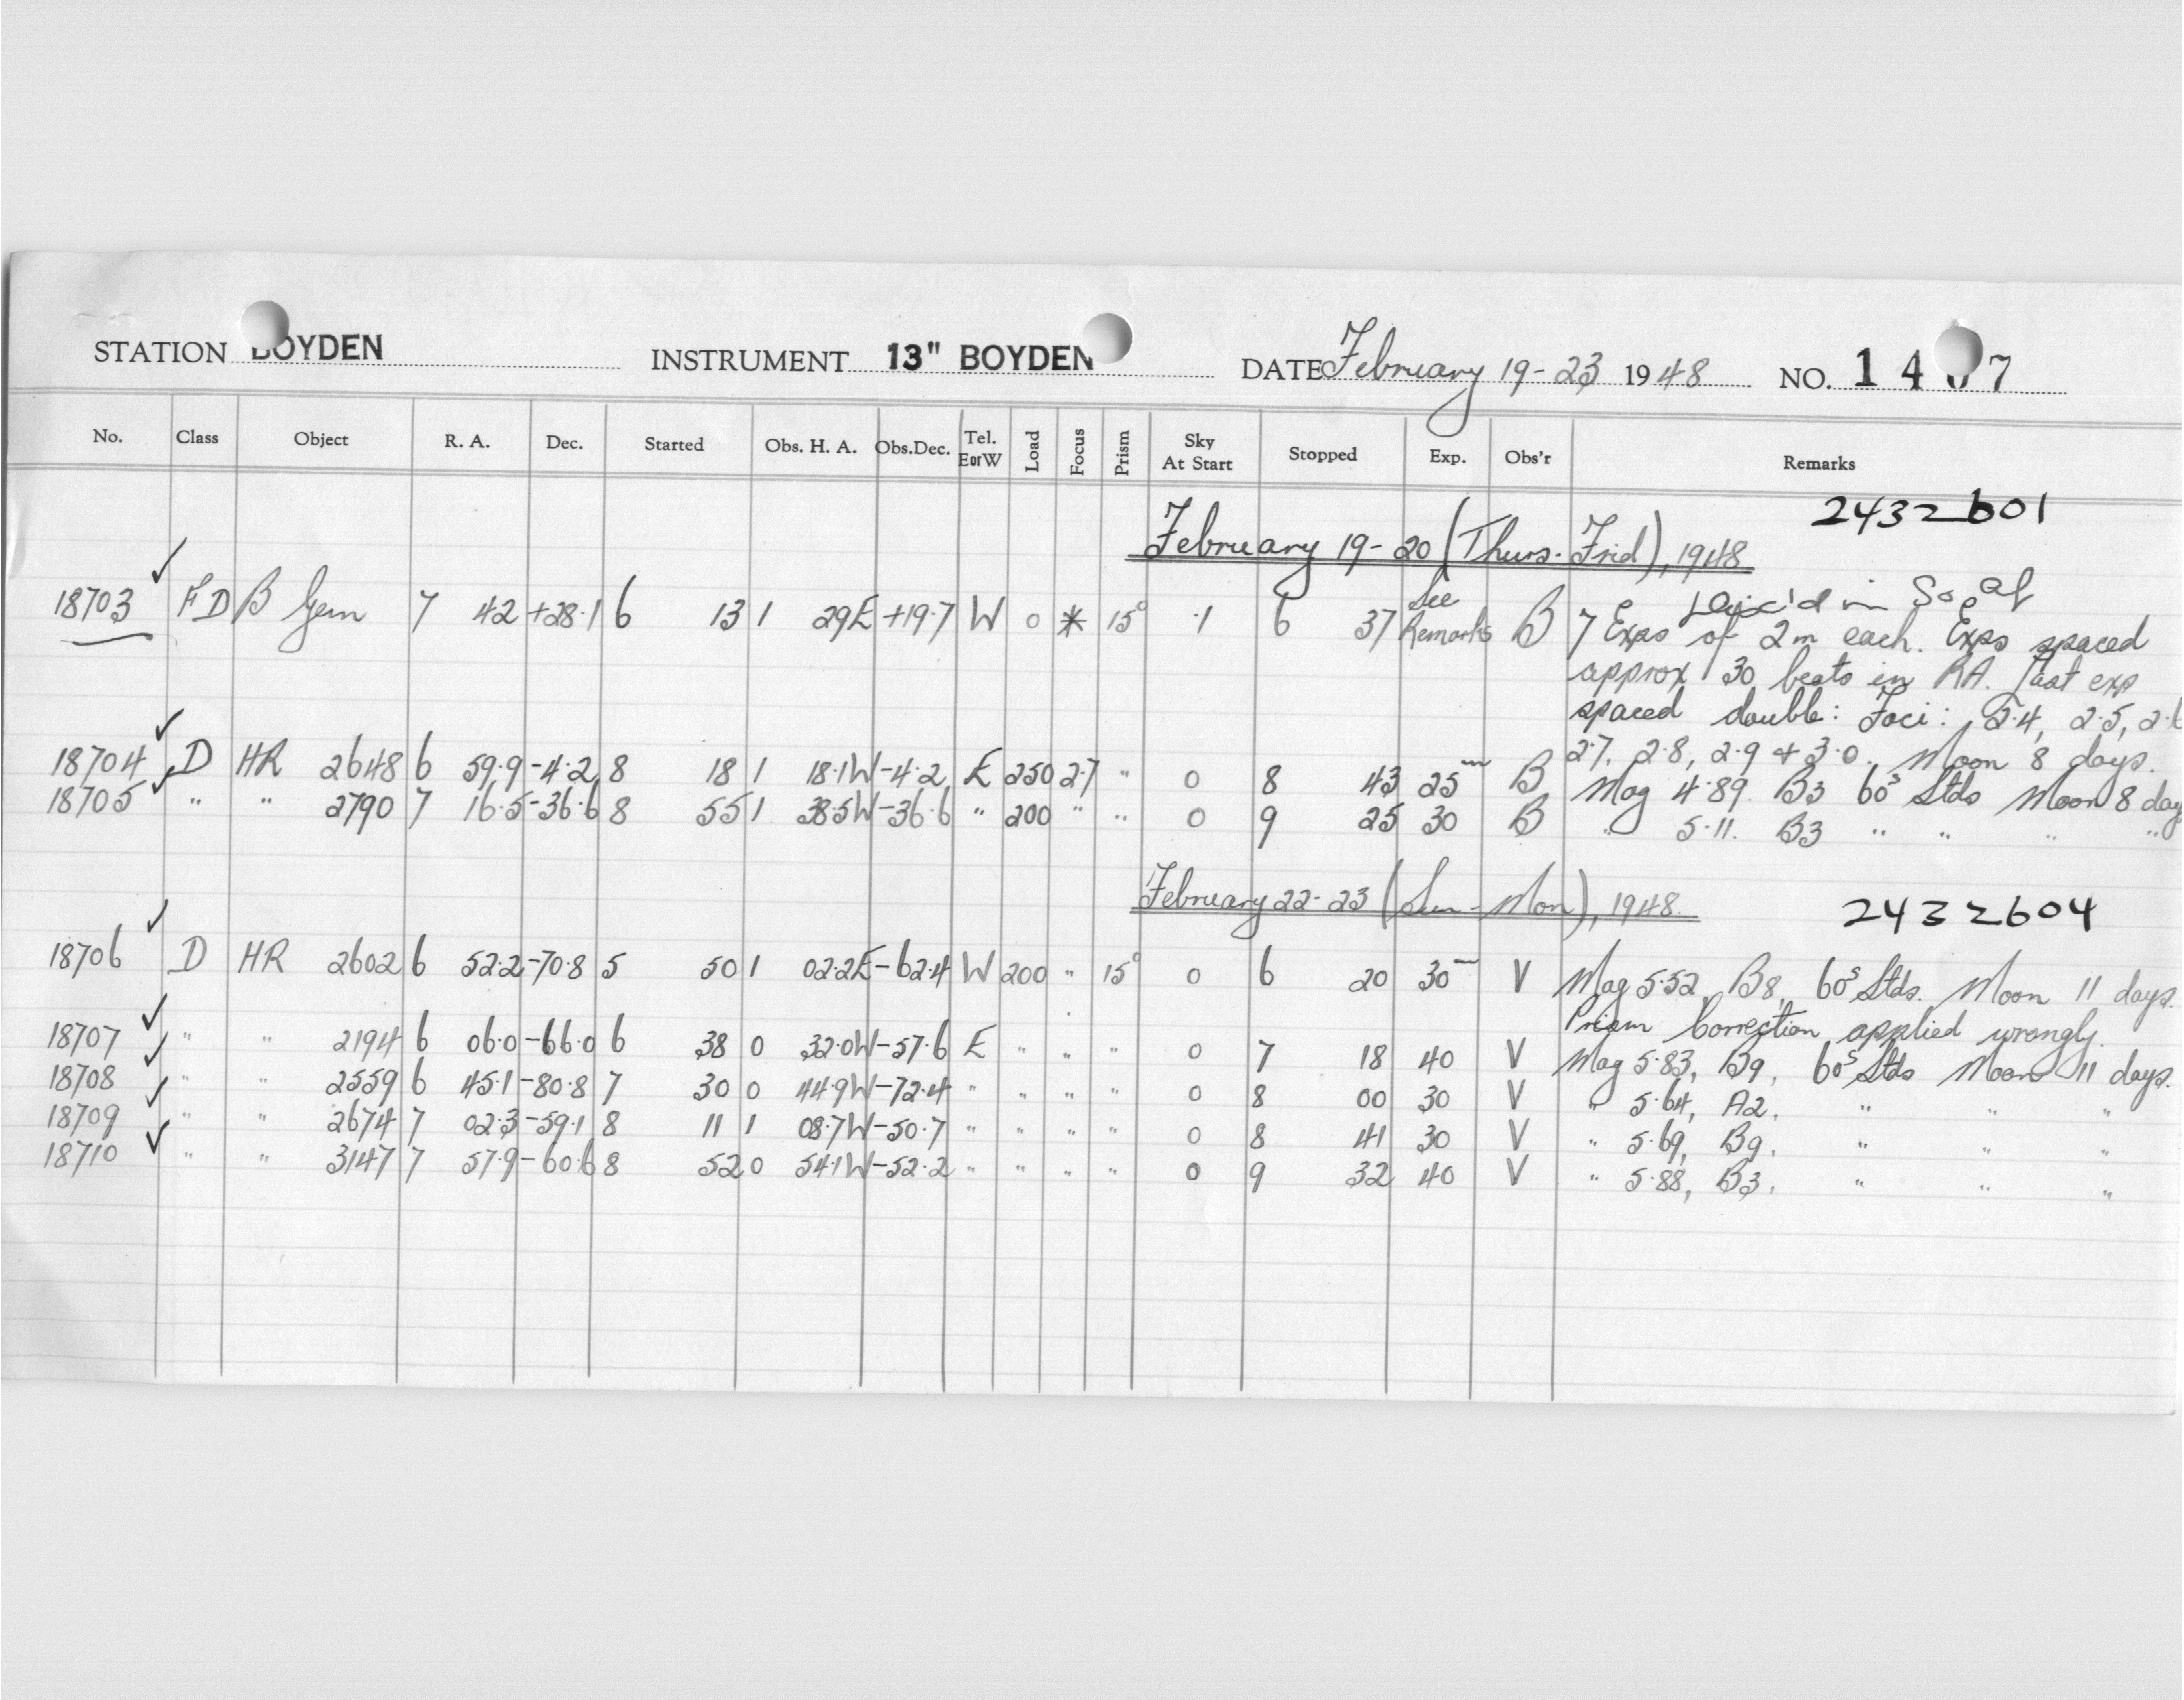 STATION BOYDEN INSTRUMENT 13" BOYDEN DATE February 19-23 1948 NO. 1407
No. Class Object R. A. Dec. Started Obs. H. A. Obs.Dec. Tel. EorW Load Focus Prism Sky At Start Stopped Exp. Obs'r Remarks
2432601
February 19-20 (Thurs-Frid), 1948
in
18703 ✓ F D β Gem 7 42 +28.1 6 13 1 29E +19.7 W 0 * 15° .1 6 37 See Remarks B 7 Exps of 2m each. Exps spaced
approx 30 beats in RA. Last exp
spaced double: Foci: 2.4, 2.5, 2.6
2.7, 2.8, 2.9 + 3.0. Moon 8 days.
18704 ✓ D HR 2648 6 59.9 -4.2 8 18 1 18.1W -4.2 E 250 2.7 " 0 8 43 25m B Mag 4.89 B3 60s Stds Moon 8 day
18705 ✓ " " 2790 7 16.5 -36.6 8 55 1 38.5W -36.6 " 200 " " 0 9 25 30 B " 5.11. B3 " " " "
February 22-23 (Sun-Mon), 1948. 2432604
18706 ✓ D HR 2602 6 52.2 -70.8 5 50 1 02.2E -62.4 W 200 " 15° 0 6 20 30m V Mag 5.52, B8, 60s Stds. Moon 11 days.
Prism Correction applied wrongly.
18707 ✓ " " 2194 6 06.0 -66.0 6 38 0 32.0W -57.6 E " " " 0 7 18 40 V Mag 5.83, B9, 60s Stds Moon 11 days.
18708 ✓ " " 2559 6 45.1 -80.8 7 30 0 44.9W -72.4 " " " " 0 8 00 30 V " 5.64, A2. " " "
18709 ✓ " " 2674 7 02.3 -59.1 8 11 1 08.7W -50.7 " " " " 0 8 41 30 V " 5.69, B9. " " "
18710 ✓ " " 3147 7 57.9 -60.6 8 52 0 54.1W -52.2 " " " " 0 9 32 40 V " 5.88, B3, " " "